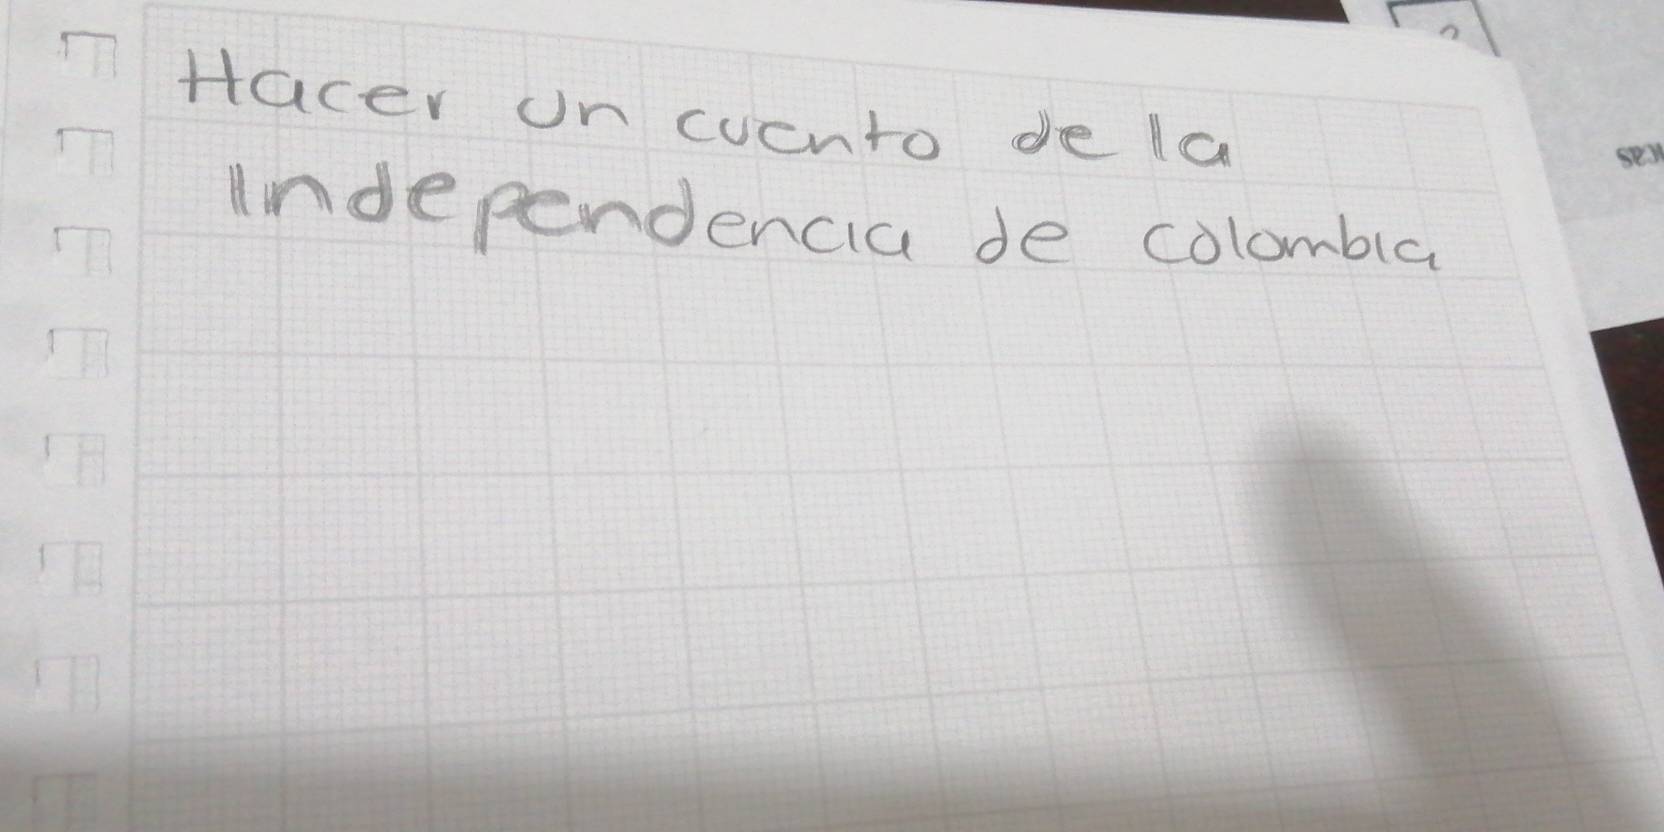 Hacer un cuento de la
independencia de colombia